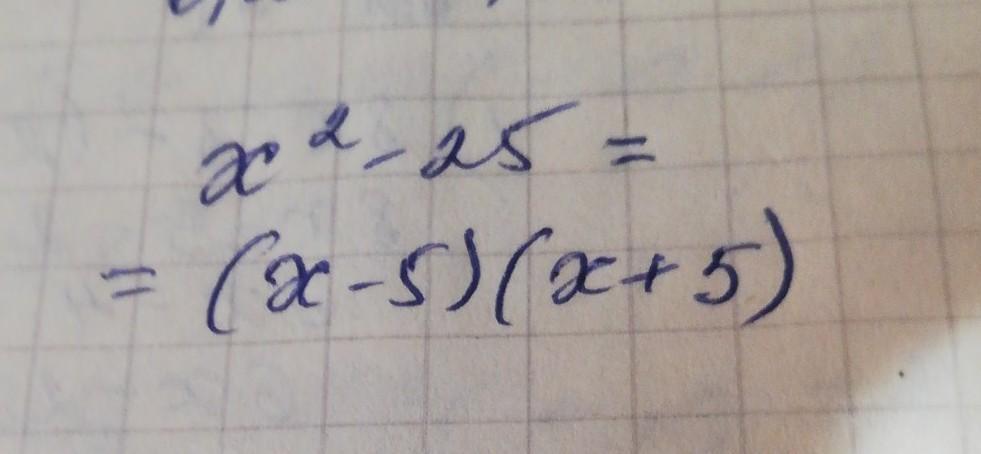 x² - 25 =
= (x - 5)(x + 5)